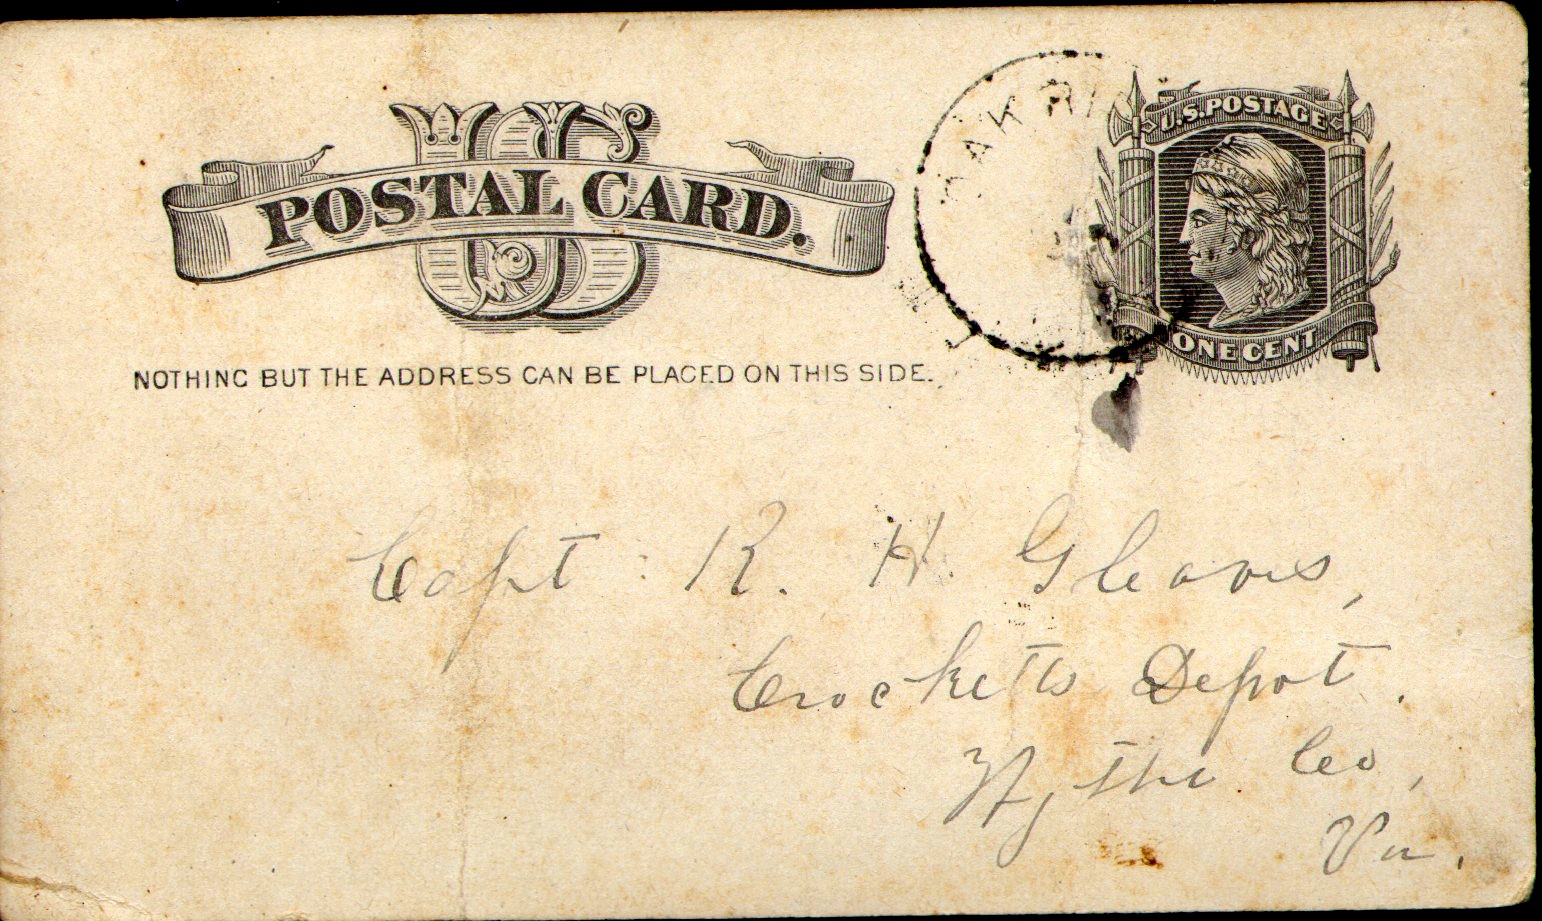 US
POSTAL CARD.
NOTHING BUT THE ADDRESS CAN BE PLACED ON THIS SIDE.
U.S. POSTAGE
ONE CENT
Capt. R. H. Gleaves,
Crocketts Depot.
Wythe Co,
Va.